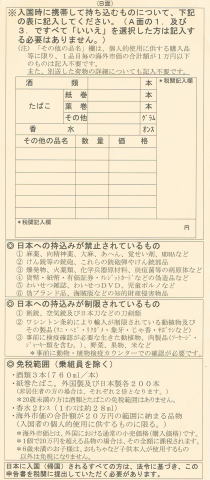 (B面)
※入国時に携帯して持ち込むものについて、下記
の表に記入してください。(A面の1.及び
3.ですべて「いいえ」を選択した方は記入す
る必要はありません。)
(注)「その他の品名」欄は、個人的使用に供する購入品
等に限り、1品目毎の海外市価の合計額が1万円以下
のものは記入不要です。
また、別送した荷物の詳細についても記入不要です。
酒類 本 *税関記入欄
たばこ 紙巻 本
葉巻 本
その他 グラム
香水 オンス
その他の品名 数量 価格
*税関記入欄
円
◎日本への持込みが禁止されているもの
① 麻薬、向精神薬、大麻、あへん、覚せい剤、MDMAなど
② けん銃等の銃砲、これらの銃砲弾やけん銃部品
③ 爆発物、火薬類、化学兵器原材料、炭疽菌等の病原体など
④ 貨幣・紙幣・有価証券・クレジットカードなどの偽造品など
⑤ わいせつ雑誌、わいせつDVD、児童ポルノなど
⑥ 偽ブランド品、海賊版などの知的財産侵害物品
◎日本への持込みが制限されているもの
① 猟銃、空気銃及び日本刀などの刀剣類
② ワシントン条約により輸入が制限されている動植物及び
その製品(ワニ・ヘビ・リクガメ・象牙・じゃ香・サボテンなど)
③ 事前に検疫確認が必要な生きた動植物、肉製品(ソーセージ・
ジャーキー類を含む。)、野菜、果物、米など
*事前に動物・植物検疫カウンターでの確認が必要です。
◎免税範囲(乗組員を除く)
・酒類3本(760ml/本)
・紙巻たばこ。外国製及び日本製各200本
(非居住者の方の場合は、それぞれ2倍となります。)
*20歳未満の方は酒類とたばこの免税範囲はありません。
・香水2オンス(1オンスは約28ml)
・海外市価の合計額が20万円の範囲に納まる品物
(入国者の個人的使用に供するものに限る。)
*海外市価とは、外国における通常の小売価格(購入価格)です。
*1個で20万円を超える品物の場合は、その全額に課税されます。
*6歳未満のお子様は、おもちゃなど子供本人が使用するもの
以外は免税になりません。
日本に入国(帰国)されるすべての方は、法令に基づき、この
申告書を税関に提出していただく必要があります。